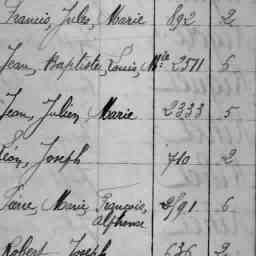 Francis, Jules, Marie 892 2
Jean, Baptiste, Louis, Mie 2511 5
Jean, Julien, Marie 2333 5
Léon, Joseph 710 2
Pierre, Marie, François, Alphonse 2791 6
Robert, Joseph 636 2